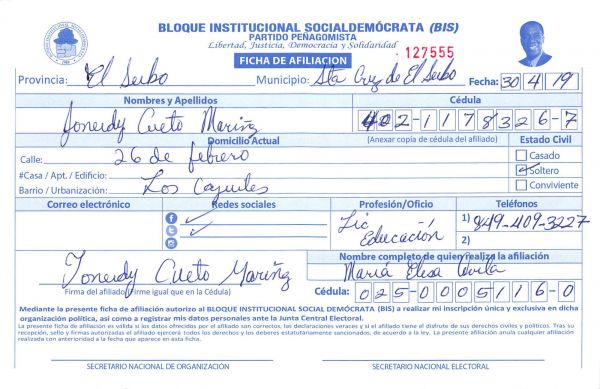 BLOQUE INSTITUCIONAL SOCIALDEMÓCRATA (BIS)
PARTIDO PEÑAGOMISTA
Libertad, Justicia, Democracia y Solidaridad
127555
FICHA DE AFILIACION
Provincia: El Seibo Municipio: Sta Cruz de El Seibo Fecha: 30 4 19
Nombres y Apellidos Cédula
Cueto Mariñez 402-1178326-7
Domicilio Actual (Anexar copia de cédula del afiliado) Estado Civil
Calle: 26 de febrero Casado
#Casa / Apt. / Edificio: Soltero
Barrio / Urbanización: Los Cajuiles Conviviente
Correo electrónico Redes sociales Profesión/Oficio Teléfonos
Lic. Educación
1) 849-409-3227
2)
Cueto Mariñez
Nombre completo de quien realiza la afiliación
María Elisa Avila
Firma del afiliado (Firme igual que en la Cédula) Cédula: 025-0005116-0
Mediante la presente ficha de afiliación autorizo al BLOQUE INSTITUCIONAL SOCIAL DEMÓCRATA (BIS) a realizar mi inscripción única y exclusiva en dicha
organización política, así como a registrar mis datos personales ante la Junta Central Electoral.
La presente ficha de afiliación es valida si los datos ofrecidos por el afiliado son correctos, las declaraciones veraces y si el afiliado tiene el disfrute de sus derechos civiles y políticos. Tras su
recepción, sello y firmas autorizados el afiliado ejercerá todos los derechos y los deberes estatutariamente sancionados, de acuerdo a la ley. La presente afiliación anula cualquier afiliación
realizada con anterioridad a la fecha que aparece en esta ficha.
SECRETARIO NACIONAL DE ORGANIZACIÓN SECRETARIO NACIONAL ELECTORAL